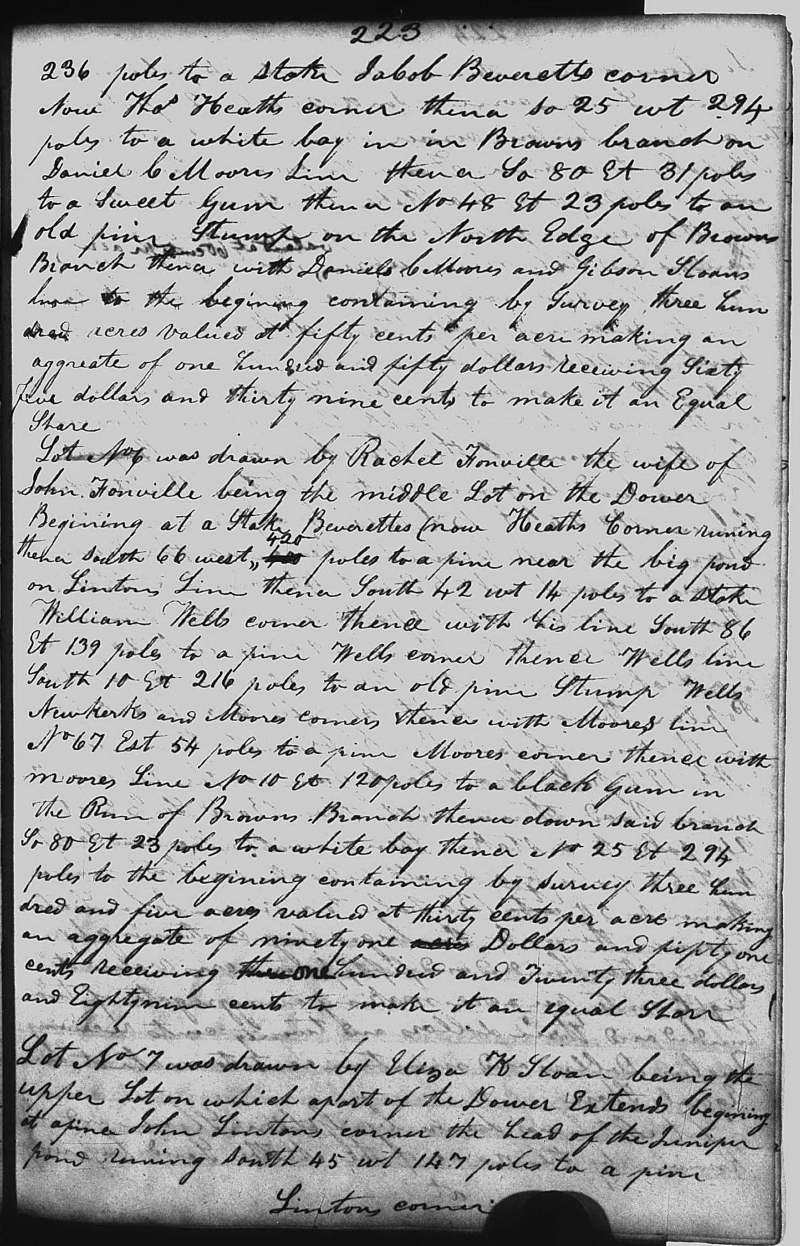 223
236 poles to a stake Jabob Beveretts corner
Now Thos Heaths corner thence So 25 wt 294
poles to a white bay in in Browns branch on
Daniel C Moores Line thence So 80 Et 31 poles
to a Sweet Gum thence No 48 Et 23 poles to an
old pine Stump on the North Edge of Browns
Branch thence with Daniels C Moores and Gibson Sloans
line to the begining containing by Survey three hun
dred acres valued at fifty cents per acre making an
aggreate of one hundred and fifty dollars receiving Sixty
five dollars and thirty nine cents to make it an Equal
Share
Lot No 6 was drawn by Rachel Fonville the wife of
John Fonville being the middle Lot on the Dower
Begining at a Stake Beverettes (now Heaths Corner runing
thence South 66 west 420 poles to a pine near the big pond
on Lintons Line thence South 42 wt 14 poles to a stake
William Wells corner thence with his line South 86
Et 139 poles to a pine Wells corner thence Wells line
South 10 Et 216 poles to an old pine Stump Wells
Newkerks and Moores corners thence with Moores line
No 67 Est 54 poles to a pine Moores corner thence with
Moores Line No 10 Et 120 poles to a black Gum in
the Run of Browns Branch thence down said branch
So 80 Et 23 poles to a white bay thence No 25 Et 294
poles to the begining containing by survey three hun
dred and five acres valued at thirty cents per acre making
an aggregate of ninety one acres Dollars and fifty one
cents receiving one hundred and Twenty three dollars
and Eighty nine cents to make it an equal Share
Lot No 7 was drawn by Eliza K Sloan being the
upper Lot on which apart of the Dower Extends begining
at a pine John Lintons corner the head of the Juniper
pond runing South 45 wt 147 poles to a pine
Lintons corner